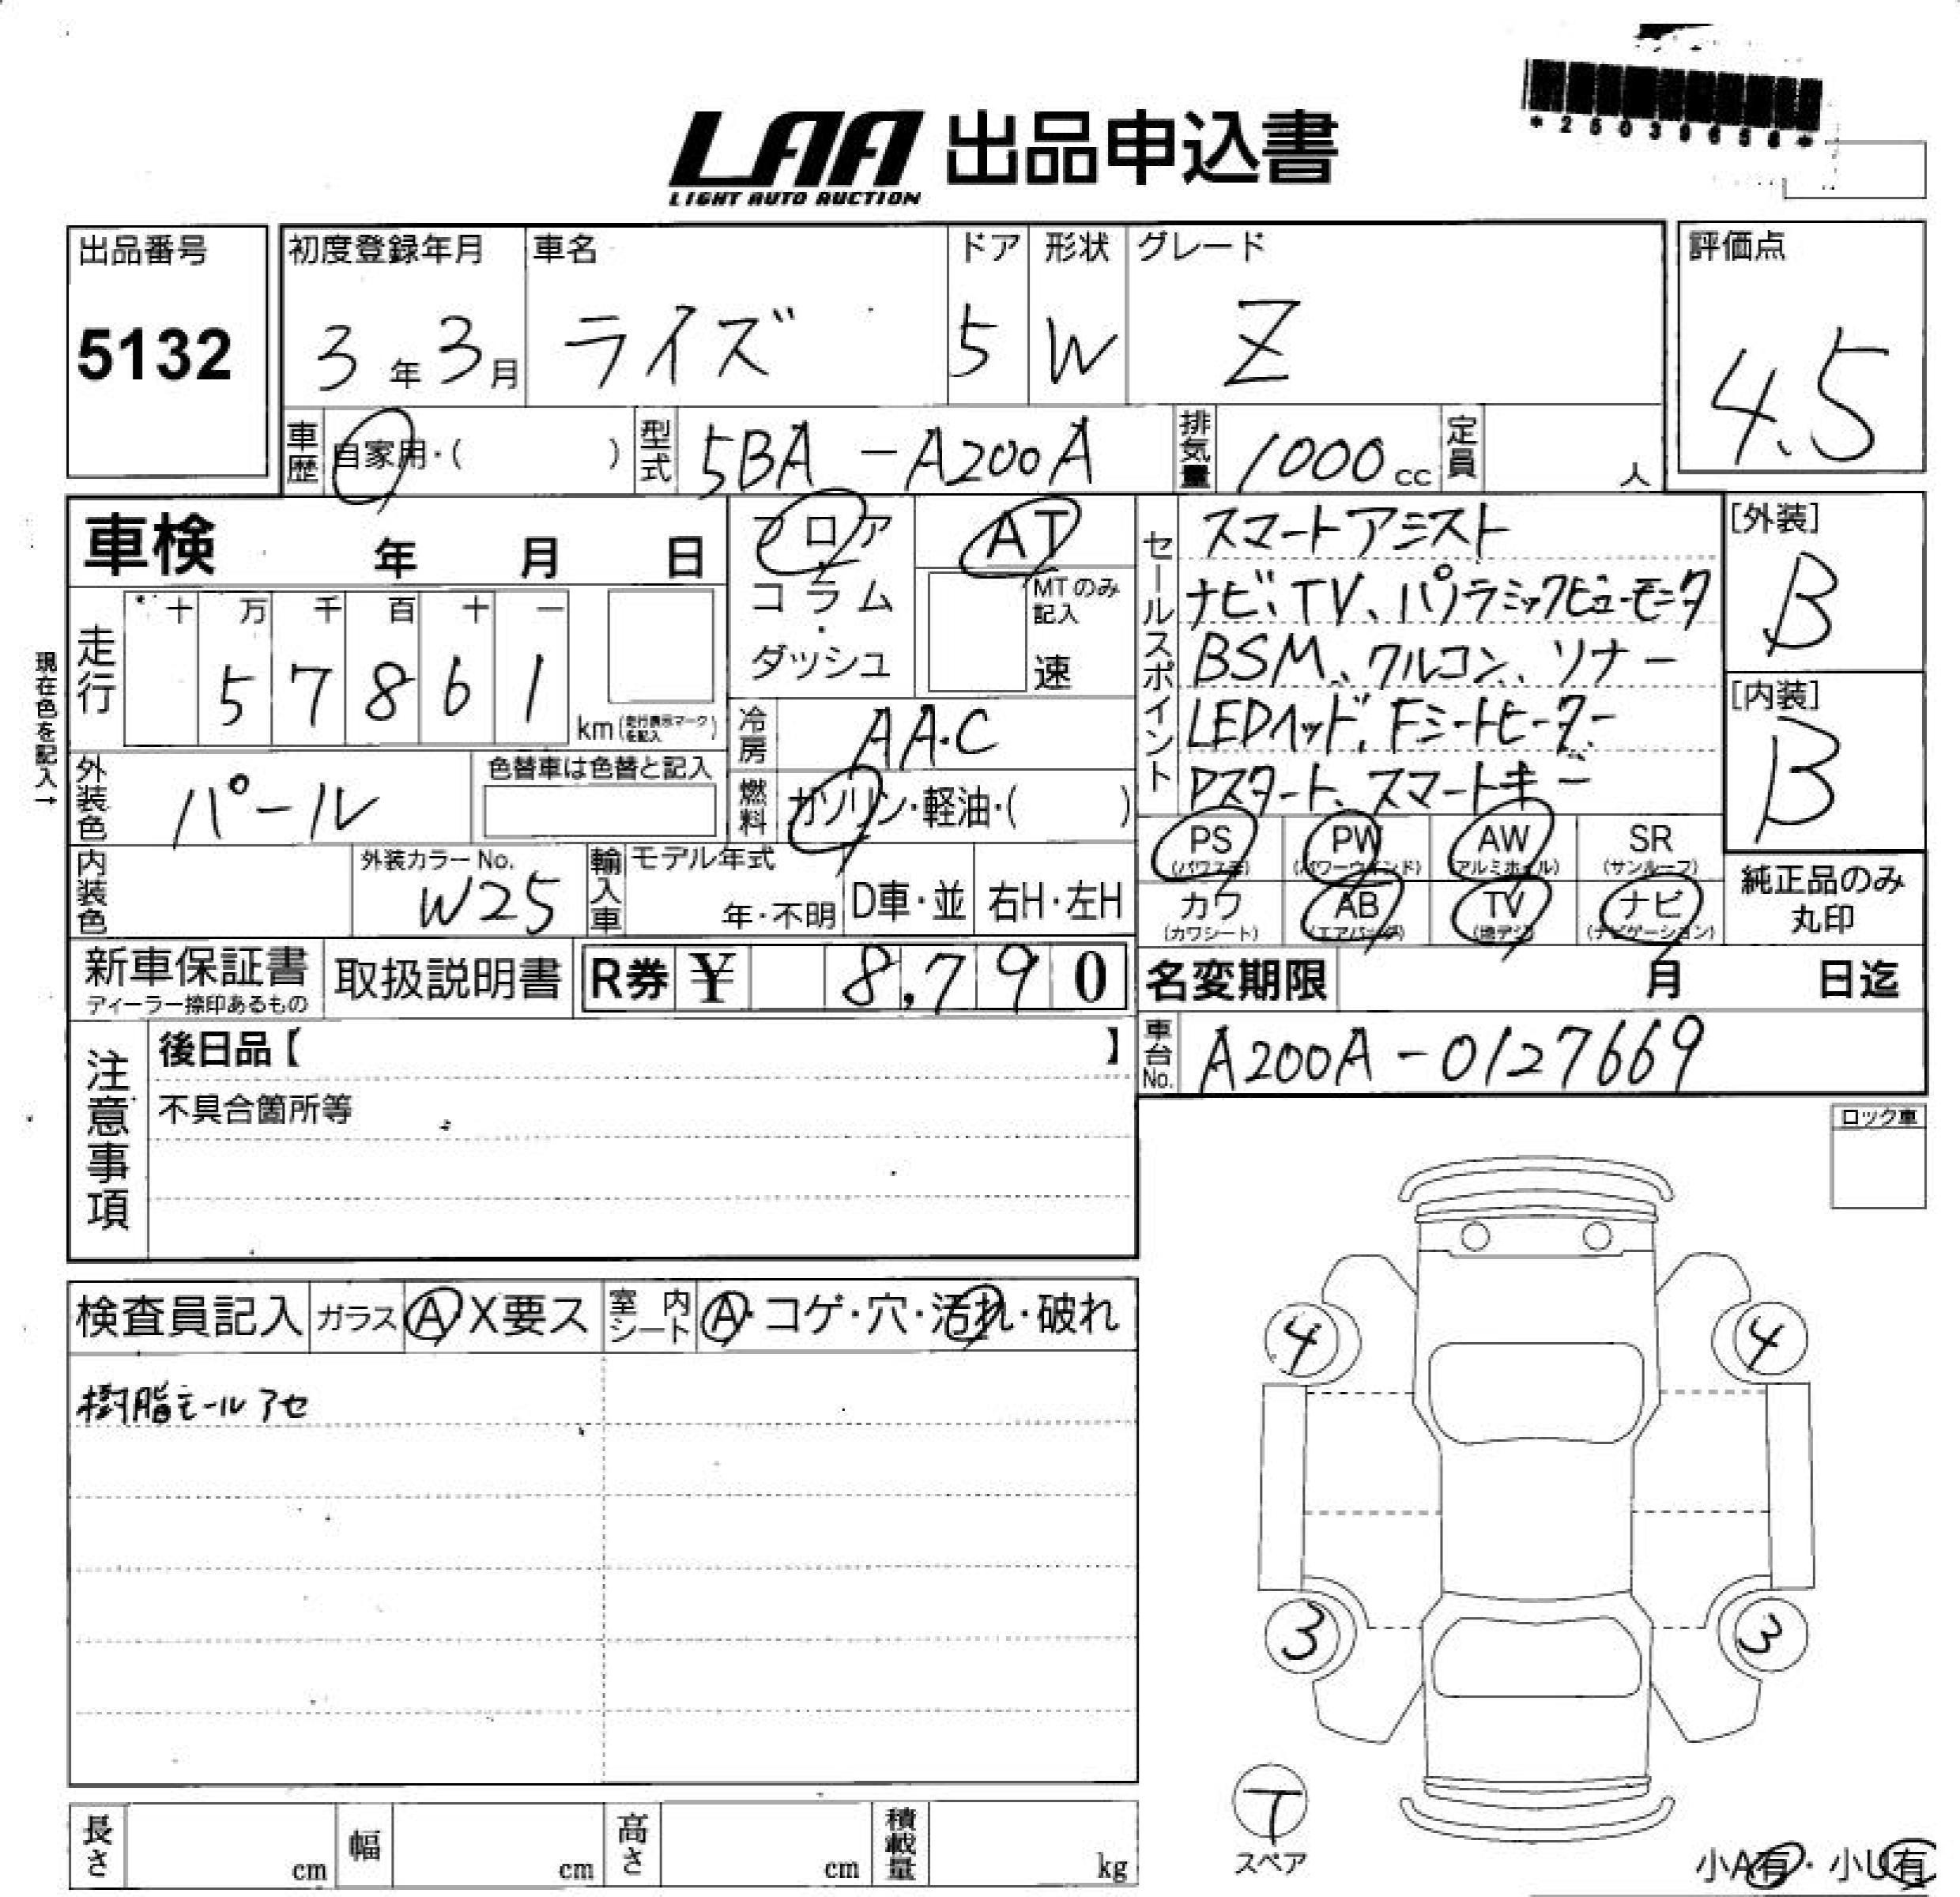 LAA 出品申込書
LIGHT AUTO AUCTION
出品番号
5132
初度登録年月
3年3月
車名
ライズ
ドア
5
形状
W
グレード
Z
評価点
4.5
車歴
自家用・( )
型式
5BA-A200A
排気量
1000cc
定員
人
車検 年 月 日
フロア・
コラム・
ダッシュ
AT
MTのみ
記入
速
セールスポイント
スマートアシスト
ナビ、TV、パノラミックビューモニタ
BSM、クルコン、ソナー
LEDヘッド、Fシートヒーター
Pスタート、スマートキー
[外装]
B
[内装]
B
現在色を記入→
走行
十 万 千 百 十 一
5 7 8 6 1
km(走行表示マークを記入)
冷房
AA.C
外装色
パール
色替車は色替と記入
燃料
ガソリン・軽油・( )
PS
(パワステ)
PW
(パワーウインド)
AW
(アルミホイル)
SR
(サンルーフ)
カワ
(カワシート)
AB
(エアバッグ)
TV
(地デジ)
ナビ
(ナビゲーション)
純正品のみ
丸印
内装色
外装カラーNo.
W25
輸入車
モデル年式
年・不明
D車・並
右H・左H
新車保証書
ディーラー捺印あるもの
取扱説明書
R券 ¥ 8,790
名変期限 月 日迄
車台No.
A200A-0127669
注意事項
後日品【 】
不具合箇所等
ロック車
検査員記入
ガラス
A・X要ス
室内シート
A・コゲ・穴・汚れ・破れ
樹脂モールアセ
4
4
3
3
T
スペア
長さ
cm
幅
cm
高さ
cm
積載量
kg
小A有・小U有